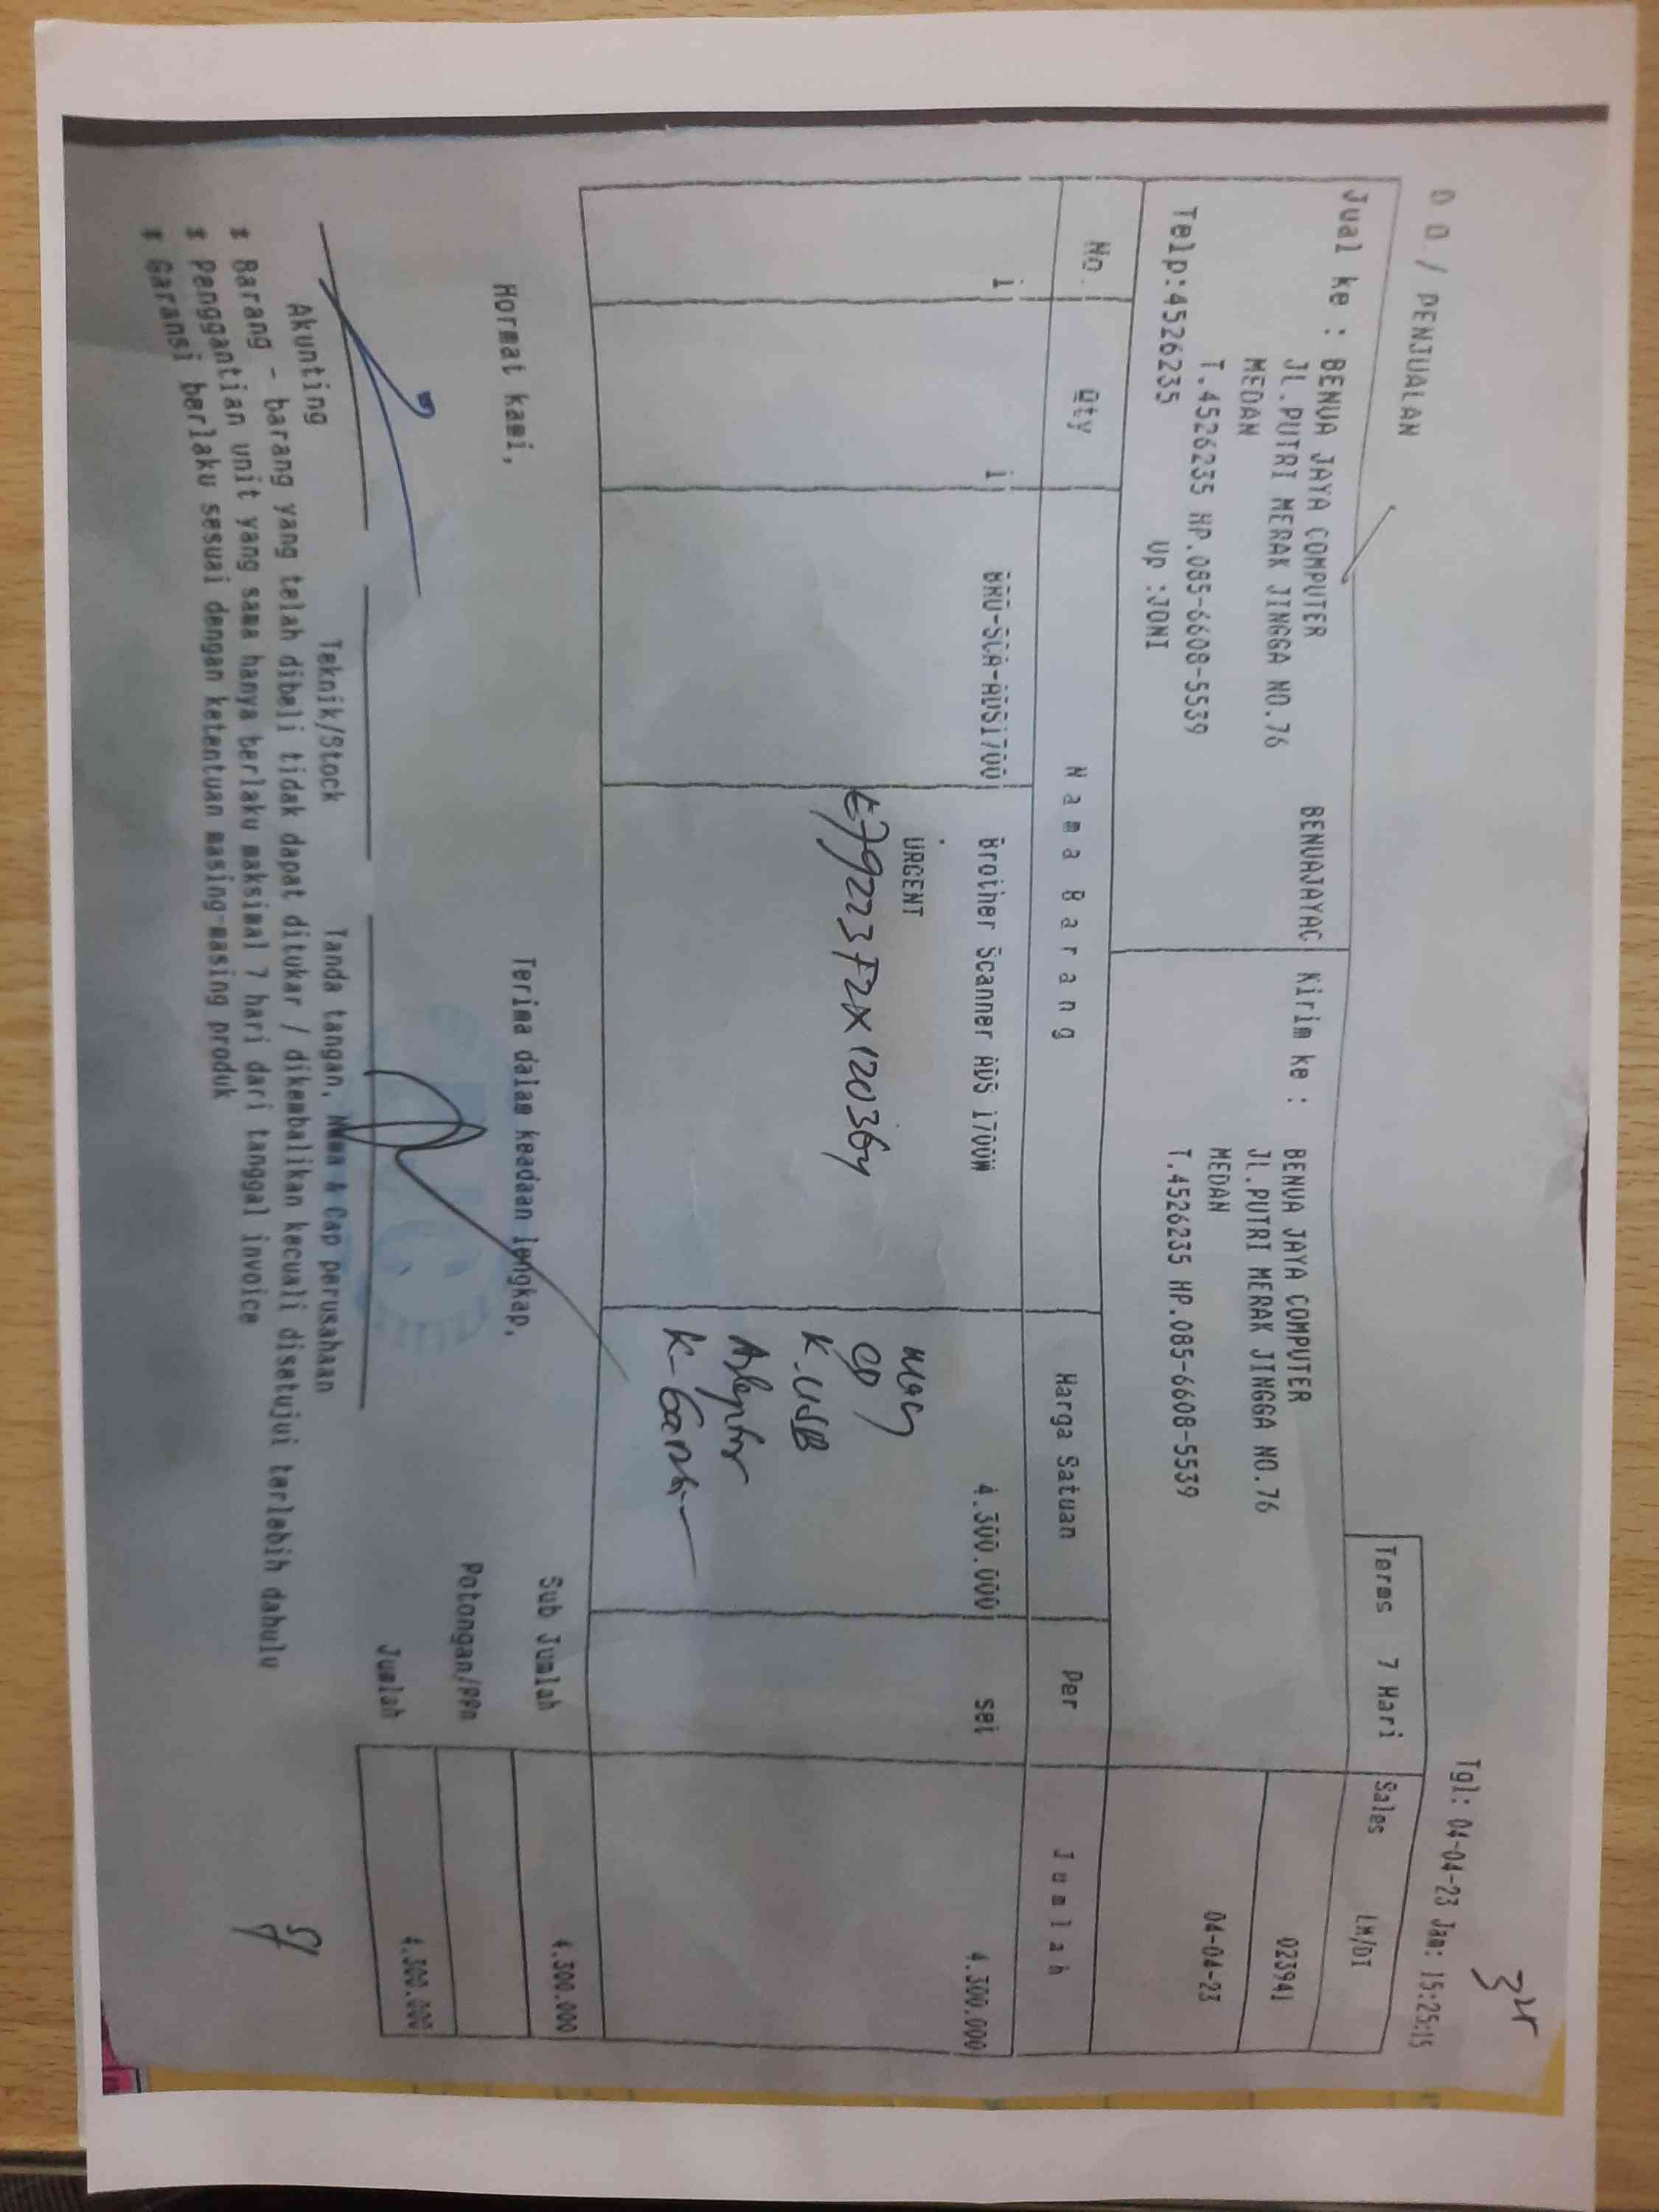 Tgl: 04-04-23 Jam: 15:25:15
D O / PENJUALAN
Terms 7 Hari Sales LM/DI
Jual ke : BENUA JAYA COMPUTER BENUAJAYAC
JL.PUTRI MERAK JINGGA NO.76
MEDAN
T.4526235 HP.085-6608-5539
Telp:4526235 Up :JONI
Kirim ke : BENUA JAYA COMPUTER
JL.PUTRI MERAK JINGGA NO.76
MEDAN
T.4526235 HP.085-6608-5539
023941
04-04-23
No. Qty Nama Barang Harga Satuan Per Jumlah
1 1 BRO-SCA-ADS1700 Brother Scanner ADS 1700W 4.300.000 set 4.300.000
URGENT
CD
K.USB
Sub Jumlah 4.300.000
Potongan/PPn
Jumlah 4.300.000
Hormat kami, Terima dalam keadaan lengkap,
Akunting Teknik/Stock Tanda tangan, Nama & Cap perusahaan
* Barang - barang yang telah dibeli tidak dapat ditukar / dikembalikan kecuali disetujui terlebih dahulu
* Penggantian unit yang sama hanya berlaku maksimal 7 hari dari tanggal invoice
* Garansi berlaku sesuai dengan ketentuan masing-masing produk